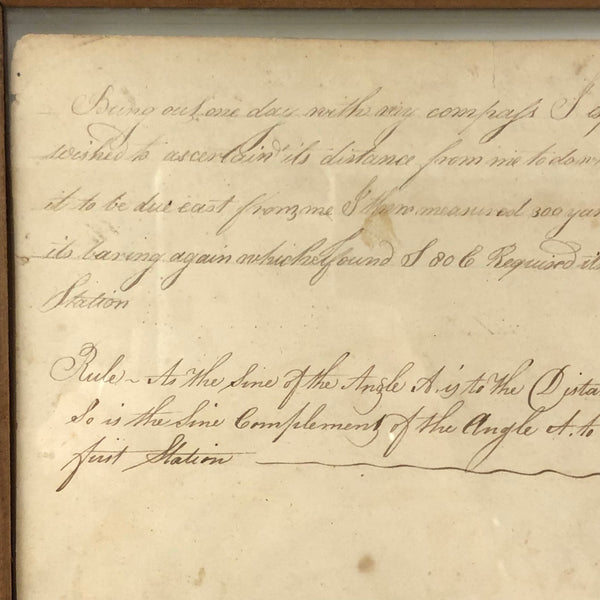 Being out one day with my compass I
wished to ascertain its distance from me to do
it to be due east from me I then measured 300 yar
its baring again which I found S 80 E Required its
Station
Rule - As the Sine of the Angle A. is to the Dista
So is the Sine Complement of the Angle A. to
first Station